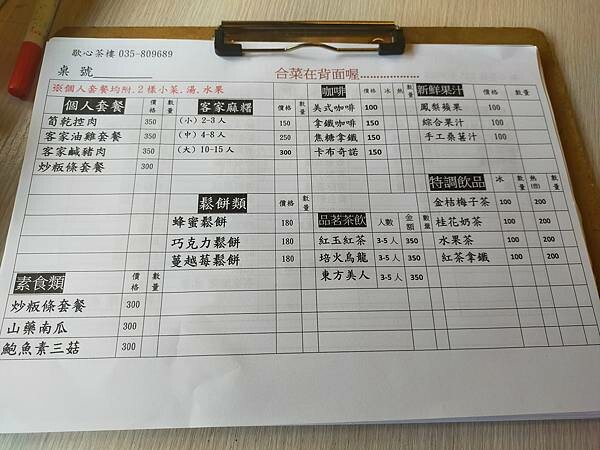 歇心茶樓 035-809689
桌 號
合菜在背面喔..................
※個人套餐均附.2樣小菜.湯.水果
個人套餐 價格 數量
筍乾控肉 350
客家油雞套餐 350
客家鹹豬肉 350
炒粄條套餐 300
客家麻糬 價格 數量
(小) 2-3人 150
(中) 4-8 人 250
(大) 10-15人 300
咖啡 價格 冰 熱 數量
美式咖啡 100
拿鐵咖啡 150
焦糖拿鐵 150
卡布奇諾 150
新鮮果汁 價格 數量
鳳梨蘋果 100
綜合果汁 100
手工桑葚汁 100
鬆餅類 價格 數量
蜂蜜鬆餅 180
巧克力鬆餅 180
蔓越莓鬆餅 180
品茗茶飲 人數 金額 數量
紅玉紅茶 3-5 人 350
焙火烏龍 3-5 人 350
東方美人 3-5 人 350
特調飲品 冰 數量 熱(壺) 數量
金桔梅子茶 100 200
桂花奶茶 100 200
水果茶 100 200
紅茶拿鐵 100 200
素食類 價格 數量
炒粄條套餐 300
山藥南瓜 300
鮑魚素三菇 300